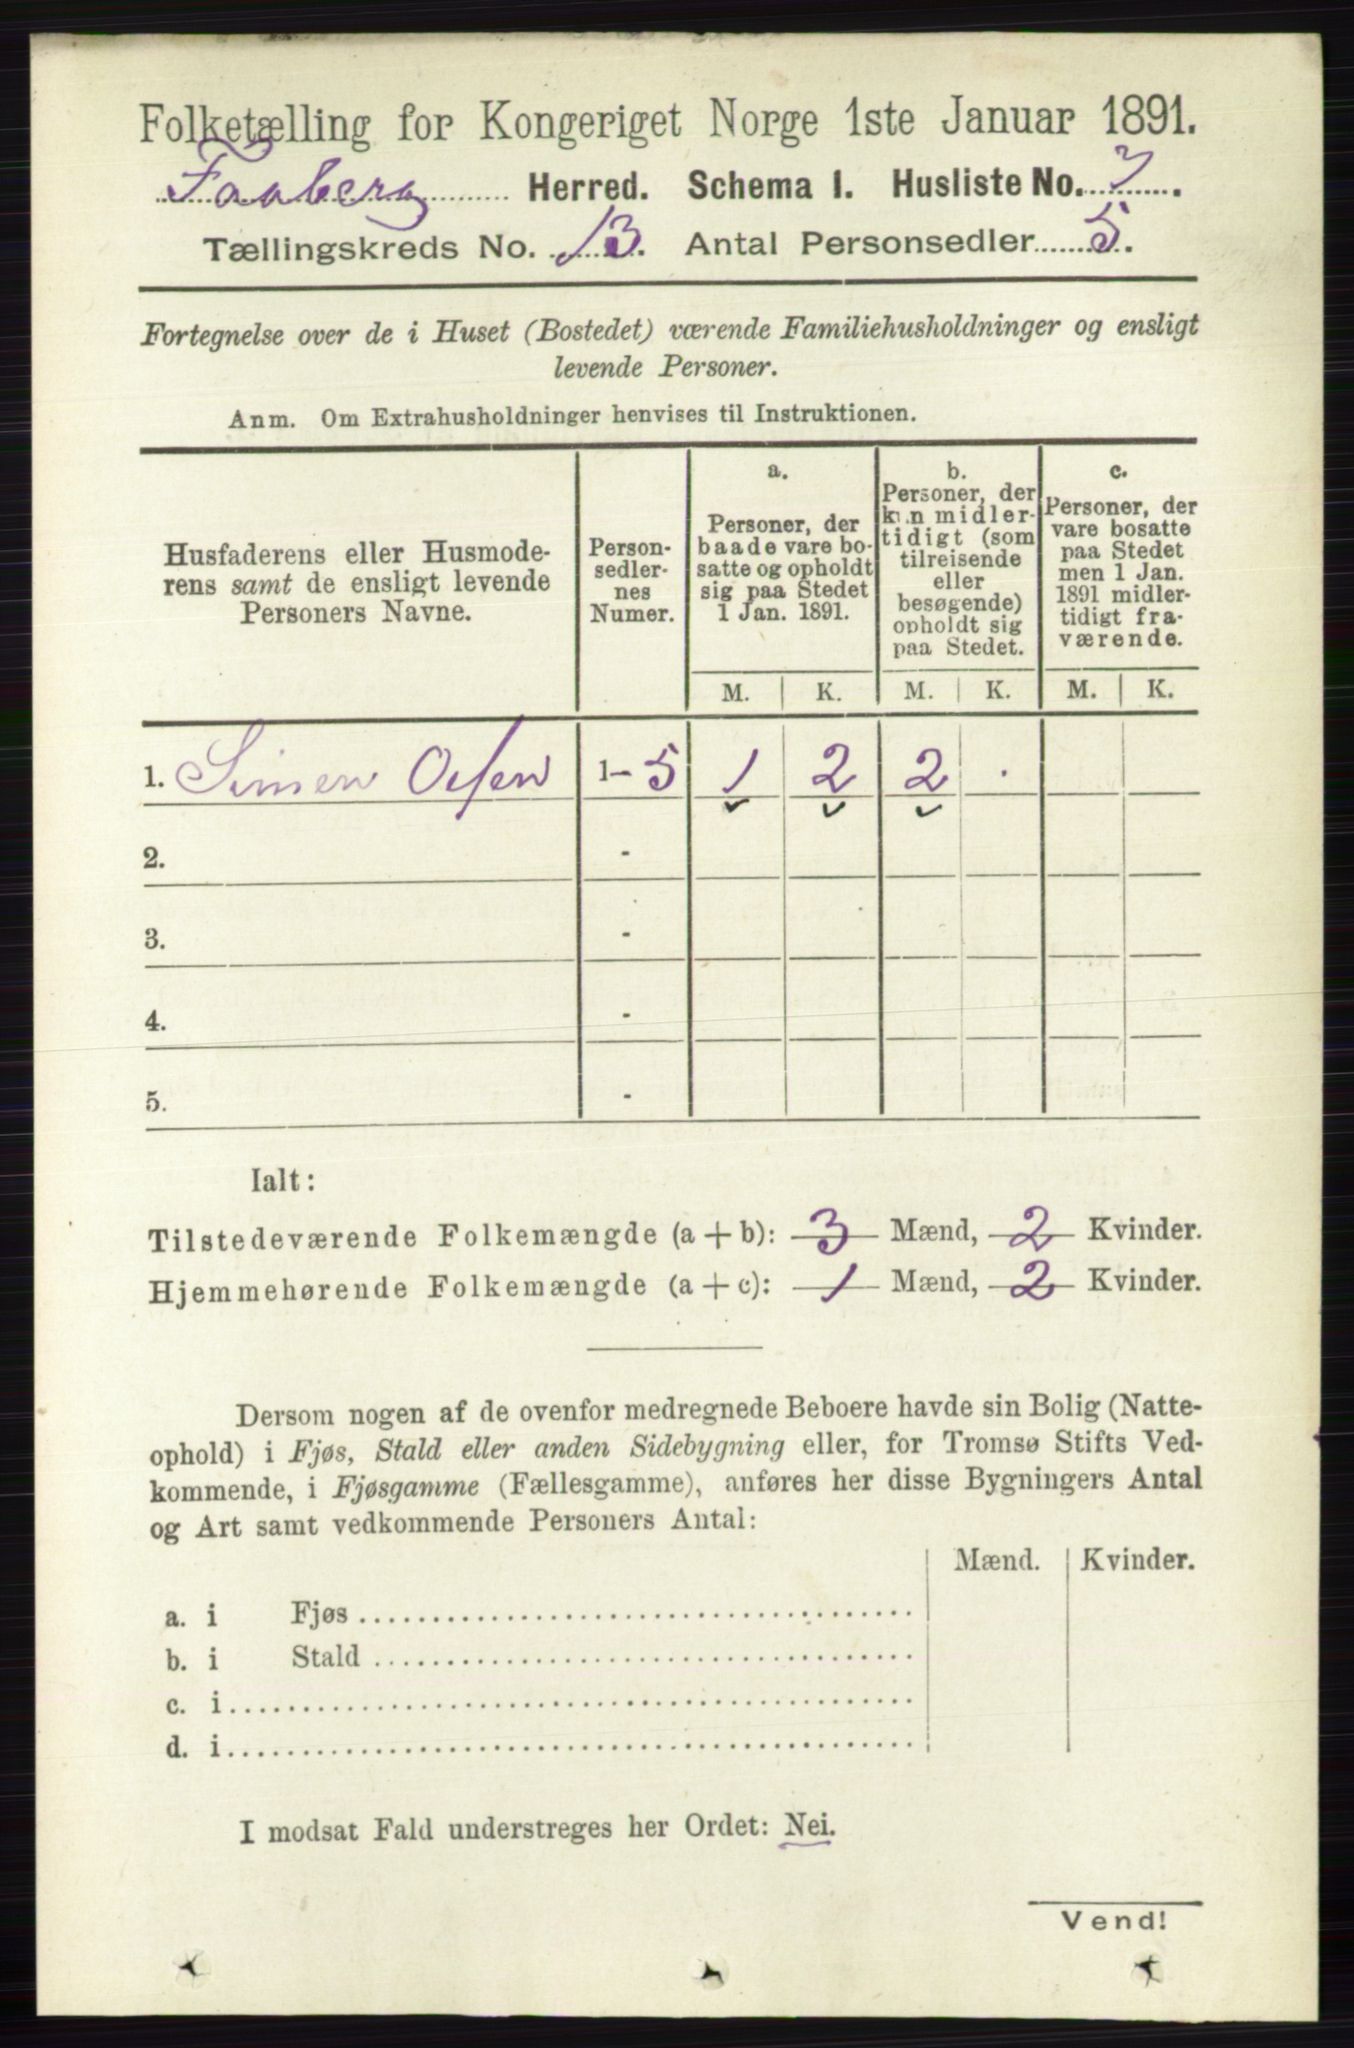 Folketælling for Kongeriget Norge 1ste Januar 1891.
Faaberg Herred. Schema I. Husliste No. 7.
Tællingskreds No. 13. Antal Personsedler 5.
Fortegnelse over de i Huset (Bostedet) værende Familiehusholdninger og ensligt
levende Personer.
Anm. Om Extrahusholdninger henvises til Instruktionen.
Husfaderens eller Husmode-
rens samt de ensligt levende
Personers Navne.
Person-
sedler-
nes
Numer.
a.
Personer, der
baade vare bo-
satte og opholdt
sig paa Stedet
1 Jan. 1891.
b.
Personer, der
kun midler-
tidigt (som
tilreisende
eller
besøgende)
opholdt sig
paa Stedet.
c.
Personer, der
vare bosatte
paa Stedet
men 1 Jan.
1891 midler-
tidigt fra-
værende.
M. K. M. K. M. K.
1. Simen Olsen 1-5 1 2 2 .
2. -
3. -
4. -
5. -
Ialt:
Tilstedeværende Folkemængde (a + b): 3 Mænd, 2 Kvinder.
Hjemmehørende Folkemængde (a + c): 1 Mænd, 2 Kvinder.
Dersom nogen af de ovenfor medregnede Beboere havde sin Bolig (Natte-
ophold) i Fjøs, Stald eller anden Sidebygning eller, for Tromsø Stifts Ved-
kommende, i Fjøsgamme (Fællesgamme), anføres her disse Bygningers Antal
og Art samt vedkommende Personers Antal:
Mænd. Kvinder.
a. i Fjøs
b. i Stald
c. i
d. i
I modsat Fald understreges her Ordet: Nei.
Vend!